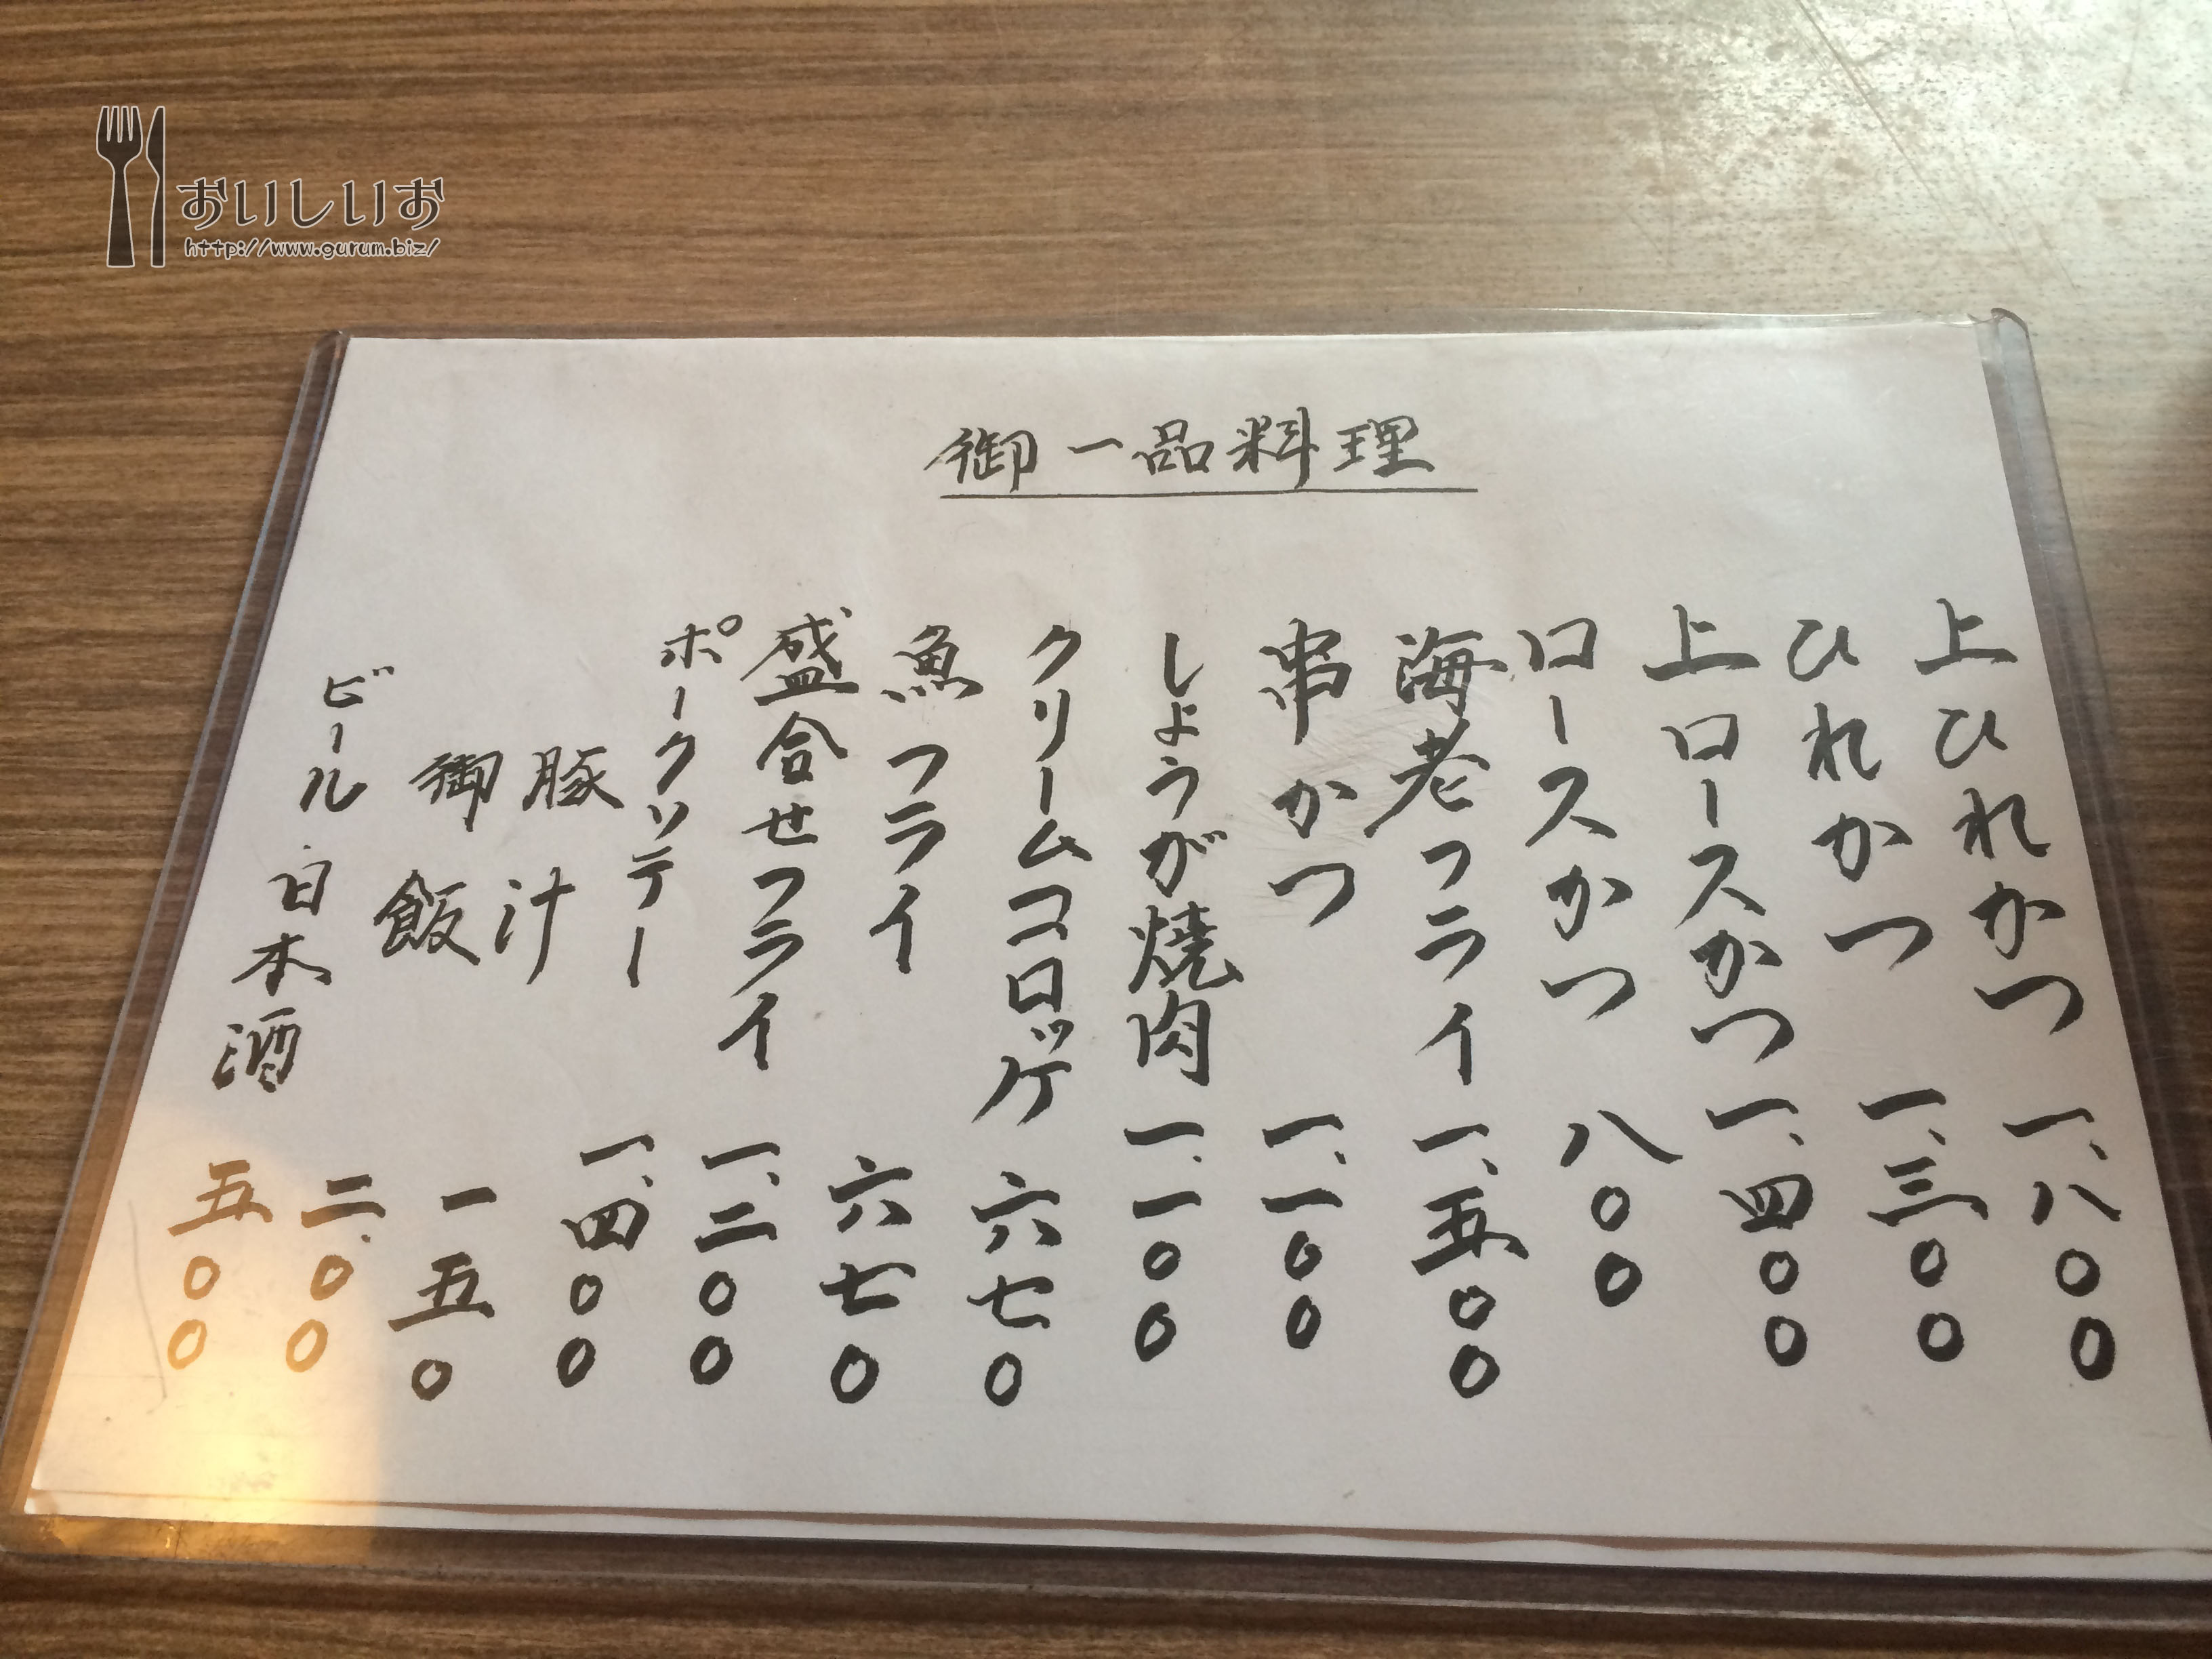 おいしいお
http://www.gurum.biz/
御一品料理
上ひれかつ 一、八〇〇
ひれかつ 一、三〇〇
上ロースかつ 一、四〇〇
ロースかつ 八〇〇
海老フライ 一、五〇〇
串かつ 一、一〇〇
しょうが焼肉 一、一〇〇
クリームコロッケ 六七〇
魚フライ 六七〇
盛合せフライ 一、二〇〇
ポークソテー 一、四〇〇
豚汁 一五〇
御飯 二〇〇
ビール・日本酒 五〇〇